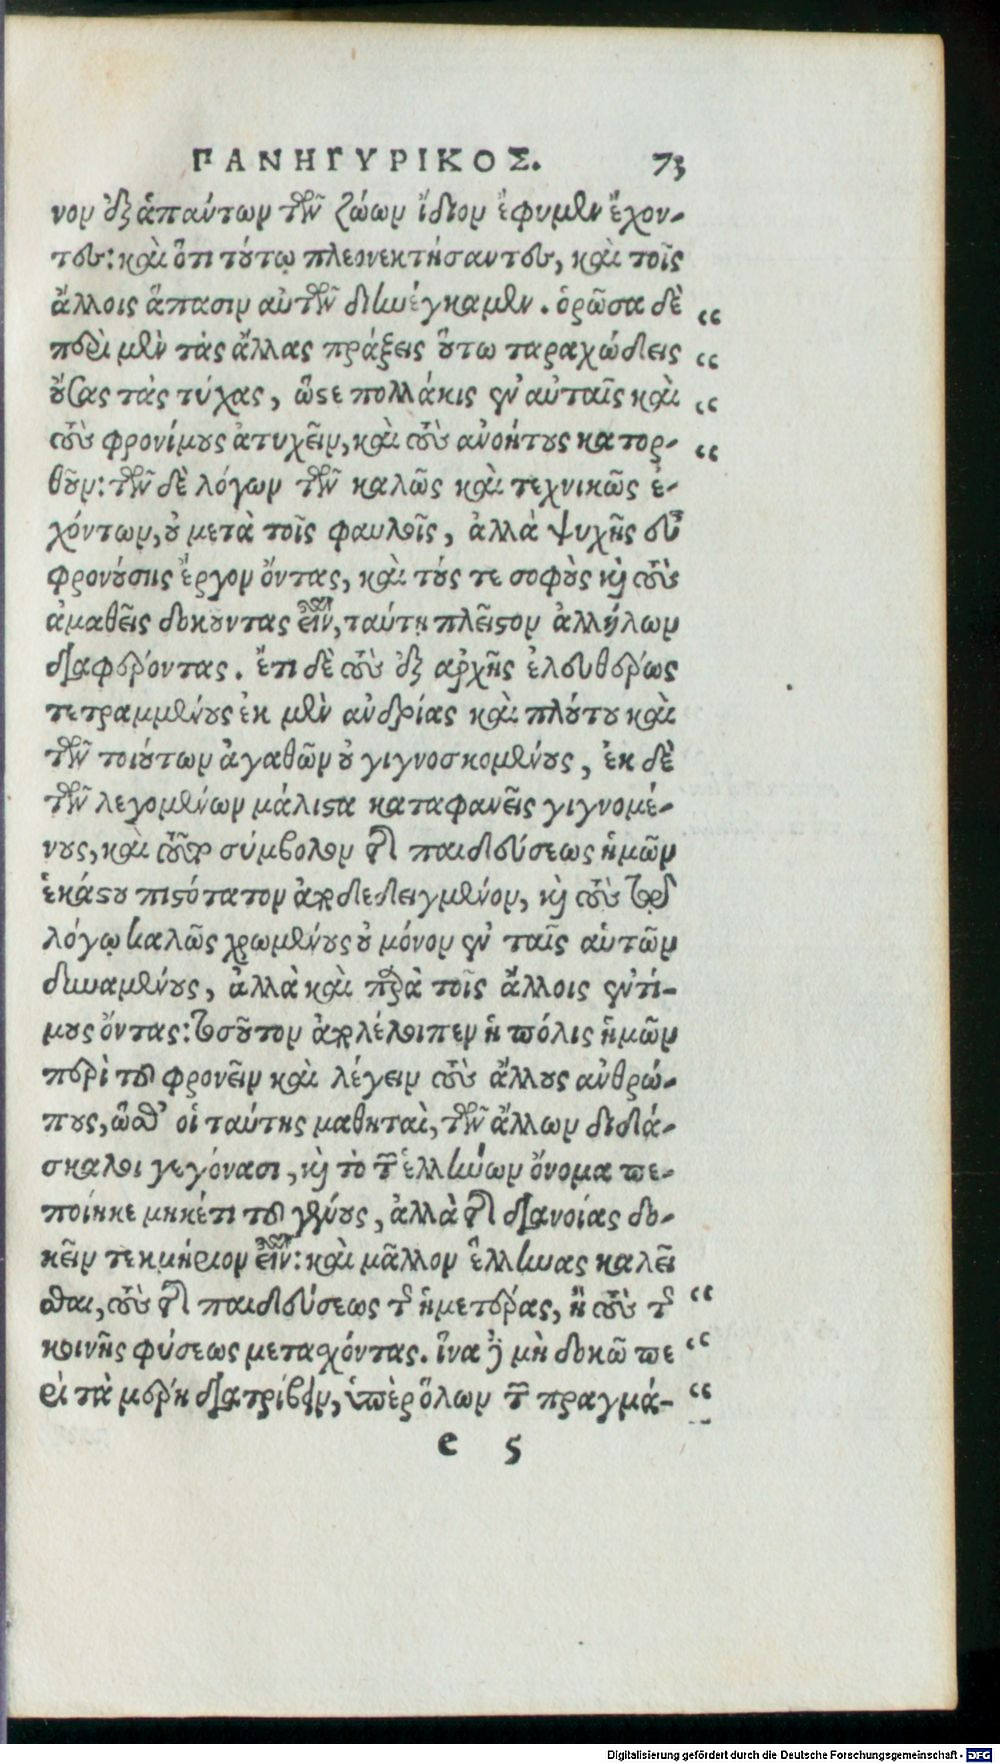 ΠΑΝΗΓΥΡΙΚΟΣ. 73
νον ἐξ ἁπάντων τῶν ζώων ἴδιον ἔφυμεν ἔχον-
τες: καὶ ὅτι τούτῳ πλεονεκτήσαντες, καὶ τοῖς
ἄλλοις ἅπασιν αὐτῶν διηνέγκαμεν. ὁρῶσα δὲ
περὶ μὲν τὰς ἄλλας πράξεις οὕτω ταραχώδεις
οὔσας τὰς τύχας, ὥστε πολλάκις ἐν αὐταῖς καὶ
τοὺς φρονίμους ἀτυχεῖν, καὶ τοὺς ἀνοήτους κατορ-
θοῦν: τῶν δὲ λόγων τῶν καλῶς καὶ τεχνικῶς ἐ-
χόντων, οὐ μετὰ τοῖς φαυλοῖς, ἀλλὰ ψυχῆς εὖ
φρονούσης ἔργον ὄντας, καὶ τούς τε σοφοὺς καὶ τοὺς
ἀμαθεῖς δοκοῦντας εἶναι, ταύτῃ πλεῖστον ἀλλήλων
διαφέροντας. ἔτι δὲ τοὺς ἐξ ἀρχῆς ἐλευθέρως
τετραμμένους ἐκ μὲν ἀνδρίας καὶ πλούτου καὶ
τῶν τοιούτων ἀγαθῶν οὐ γιγνοσκομένους, ἐκ δὲ
τῶν λεγομένων μάλιστα καταφανεῖς γιγνομέ-
νους, καὶ τοῦτο σύμβολον τῆς παιδεύσεως ἡμῶν
ἑκάστου πιστότατον ἀποδεδειγμένον, καὶ τοὺς τῷ
λόγῳ καλῶς χρωμένους οὐ μόνον ἐν ταῖς αὑτῶν
δυναμένους, ἀλλὰ καὶ παρὰ τοῖς ἄλλοις ἐντί-
μους ὄντας: τοσοῦτον ἀπολέλοιπεν ἡ πόλις ἡμῶν
περὶ τὸ φρονεῖν καὶ λέγειν τοὺς ἄλλους ἀνθρώ-
πους, ὥσθ’ οἱ ταύτης μαθηταὶ, τῶν ἄλλων διδά-
σκαλοι γεγόνασι, καὶ τὸ τῶν ἑλλήνων ὄνομα πε-
ποίηκε μηκέτι τοῦ γένους, ἀλλὰ τῆς διανοίας δο-
κεῖν τεκμήριον εἶναι: καὶ μᾶλλον ἕλληνας καλεῖ
σθαι, τοὺς τῆς παιδεύσεως τῆς ἡμετέρας, ἢ τοὺς τῆς
κοινῆς φύσεως μετασχόντας. ἵνα δὲ μὴ δοκῶ πε
ρὶ τὰ μέρη διατρίβειν, ὑπὲρ ὅλων τῶν πραγμά-
e 5
Digitalisierung gefördert durch die Deutsche Forschungsgemeinschaft - DFG